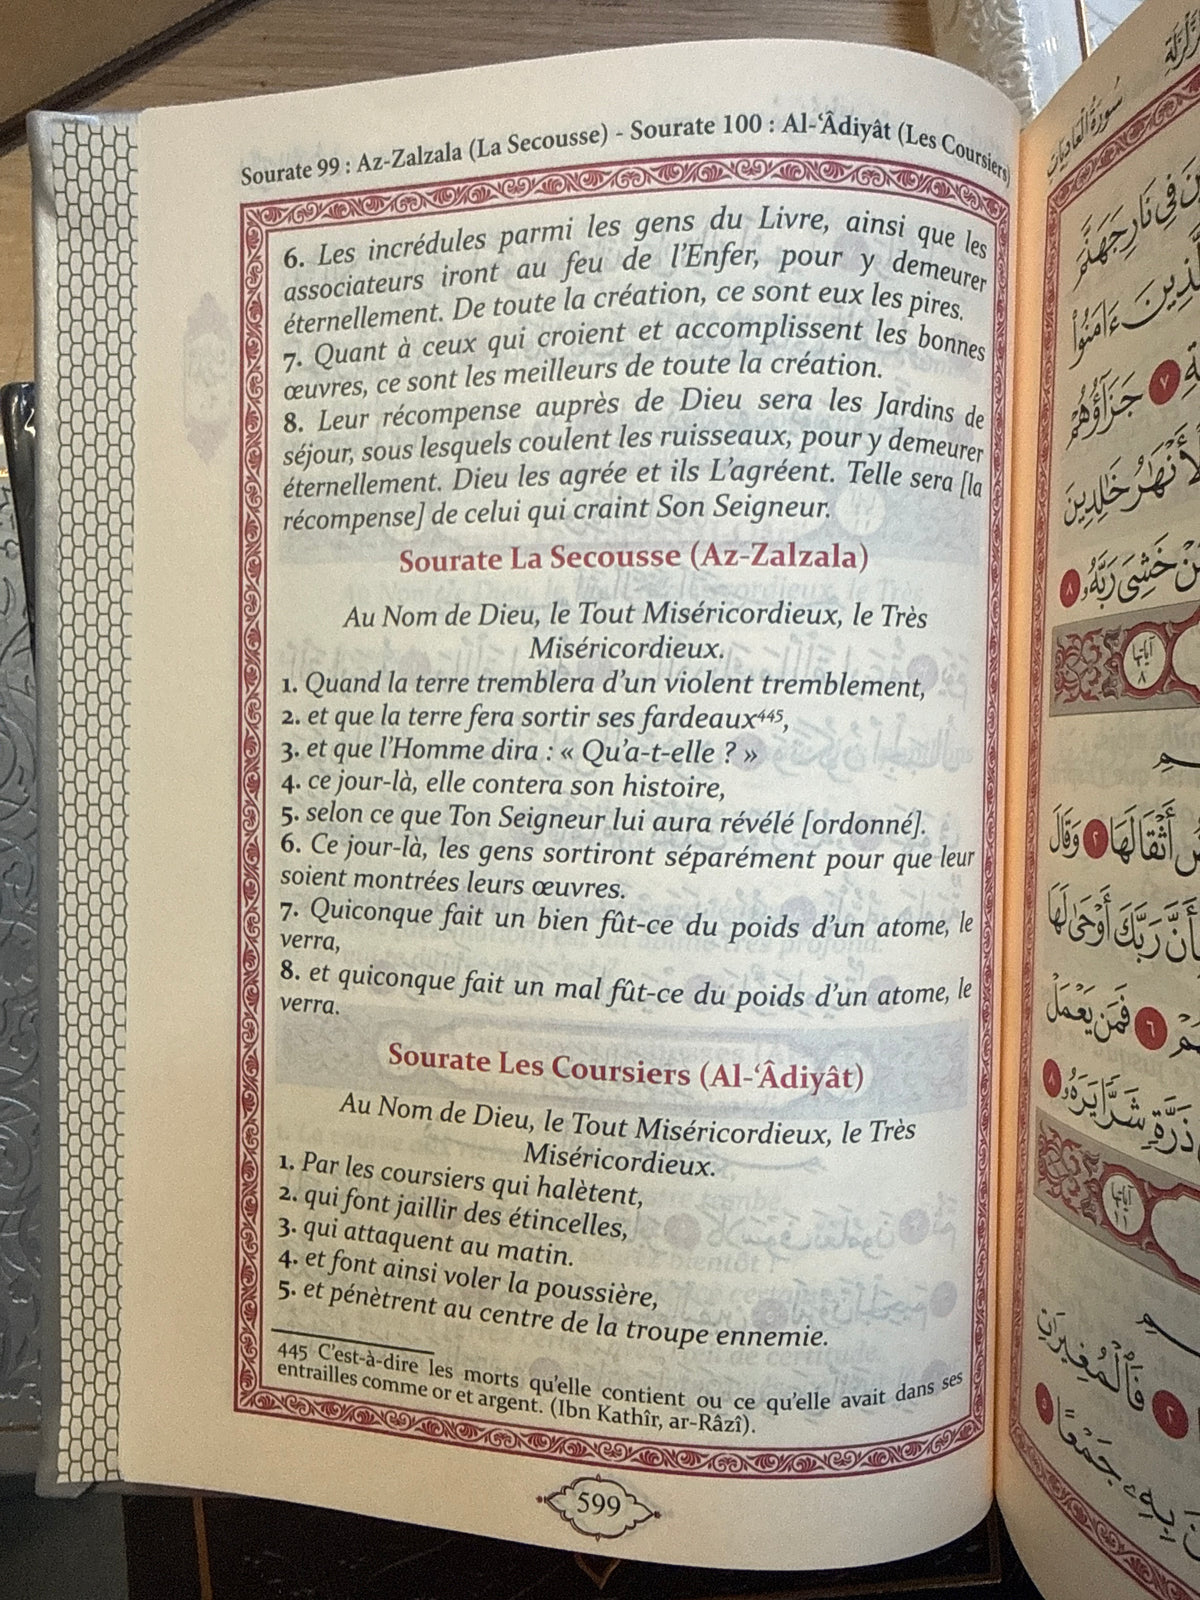 Sourate 99 : Az-Zalzala (La Secousse) - Sourate 100 : Al-‘Âdiyât (Les Coursiers)
6. Les incrédules parmi les gens du Livre, ainsi que les
associateurs iront au feu de l’Enfer, pour y demeurer
éternellement. De toute la création, ce sont eux les pires.
7. Quant à ceux qui croient et accomplissent les bonnes
œuvres, ce sont les meilleurs de toute la création.
8. Leur récompense auprès de Dieu sera les Jardins de
séjour, sous lesquels coulent les ruisseaux, pour y demeurer
éternellement. Dieu les agrée et ils L’agréent. Telle sera [la
récompense] de celui qui craint Son Seigneur.
Sourate La Secousse (Az-Zalzala)
Au Nom de Dieu, le Tout Miséricordieux, le Très
Miséricordieux.
1. Quand la terre tremblera d’un violent tremblement,
2. et que la terre fera sortir ses fardeaux⁴⁴⁵,
3. et que l’Homme dira : « Qu’a-t-elle ? »
4. ce jour-là, elle contera son histoire,
5. selon ce que Ton Seigneur lui aura révélé [ordonné].
6. Ce jour-là, les gens sortiront séparément pour que leur
soient montrées leurs œuvres.
7. Quiconque fait un bien fût-ce du poids d’un atome, le
verra,
8. et quiconque fait un mal fût-ce du poids d’un atome, le
verra.
Sourate Les Coursiers (Al-‘Âdiyât)
Au Nom de Dieu, le Tout Miséricordieux, le Très
Miséricordieux.
1. Par les coursiers qui halètent,
2. qui font jaillir des étincelles,
3. qui attaquent au matin.
4. et font ainsi voler la poussière,
5. et pénètrent au centre de la troupe ennemie.
445 C’est-à-dire les morts qu’elle contient ou ce qu’elle avait dans ses
entrailles comme or et argent. (Ibn Kathîr, ar-Râzî).
599
سُورَةُ الْعَادِيَات
فِي نَارِ جَهَنَّمَ
ءَامَنُوا۟
٧ جَزَآؤُهُمْ
ٱلْأَنْهَٰرُ خَٰلِدِينَ
خَشِىَ رَبَّهُۥ ٨
آياتها
٨
أَثْقَالَهَا ٢ وَقَالَ
بِأَنَّ رَبَّكَ أَوْحَىٰ لَهَا
٦ فَمَن يَعْمَلْ
ذَرَّةٍ شَرًّا يَرَهُۥ ٨
آياتها
١١
فَٱلْمُغِيرَٰتِ
٢
بِهِۦ جَمْعًا ٥